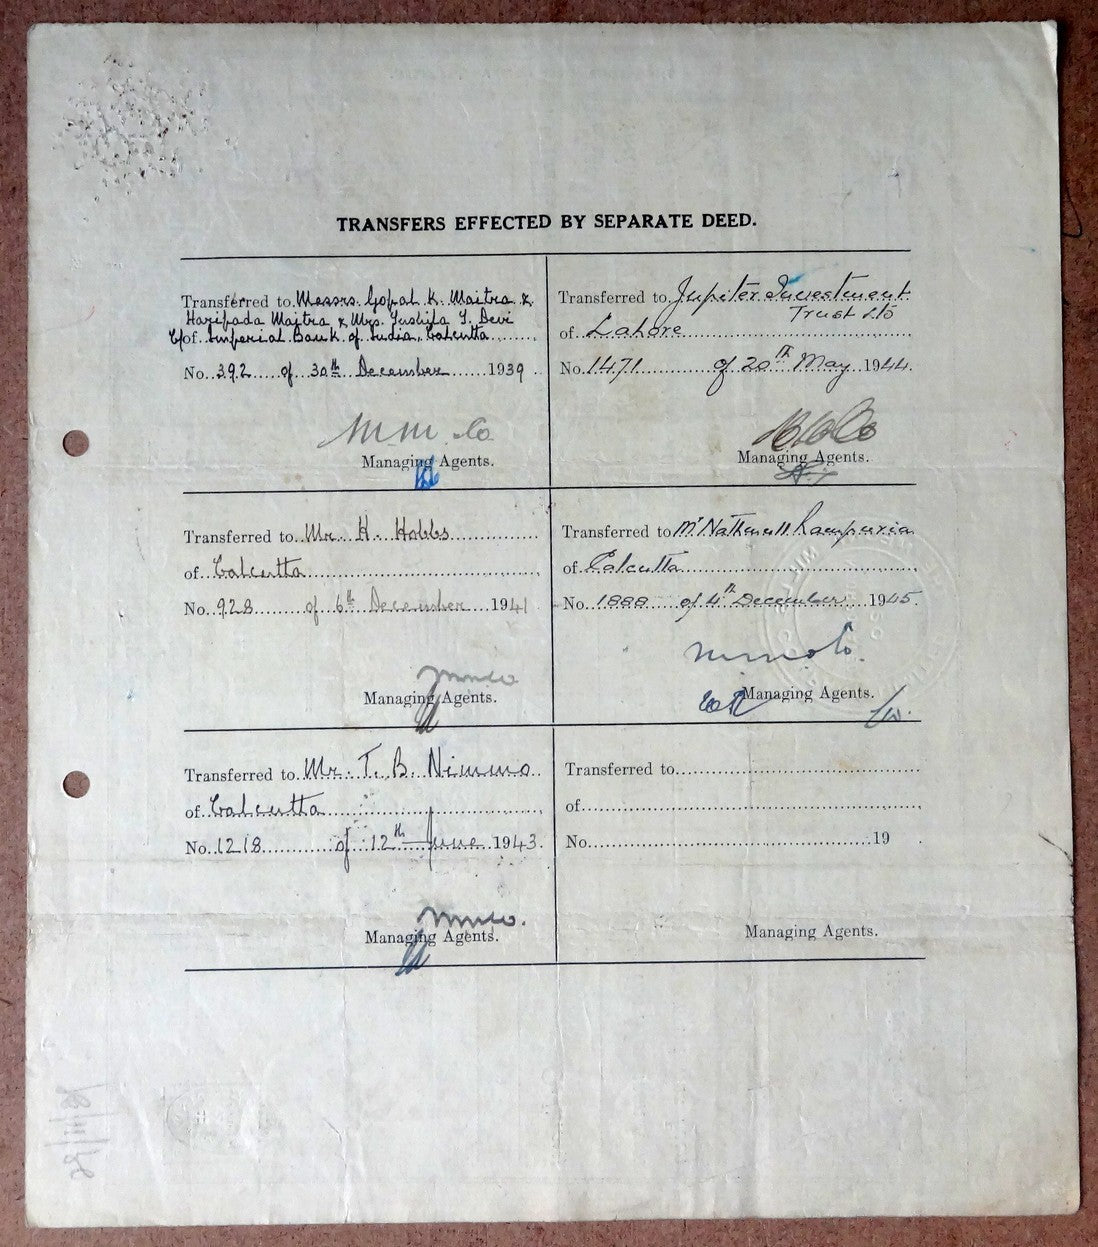 TRANSFERS EFFECTED BY SEPARATE DEED.
Transferred to Messrs. Gopal K. Maitra &
Haripada Maitra & Mrs. Sushila S. Devi
C/o of Imperial Bank of India, Calcutta
No. 392 of 30th December 1939
M M Co
Managing Agents.
Transferred to Mr. H. Hobbs
of Calcutta
No. 928 of 6th December 1941
Managing Agents.
Transferred to Mr. T. B. Nimmo
of Calcutta
No. 1218 of 12th June 1943.
Managing Agents.
Transferred to Jupiter Investment
Trust Ltd
of Lahore
No. 1471 of 20th May 1944.
Managing Agents.
Transferred to Mr Nathmull Rampuria
of Calcutta
No. 1888 of 4th December 1945.
Managing Agents.
Transferred to
of
No. 19 .
Managing Agents.